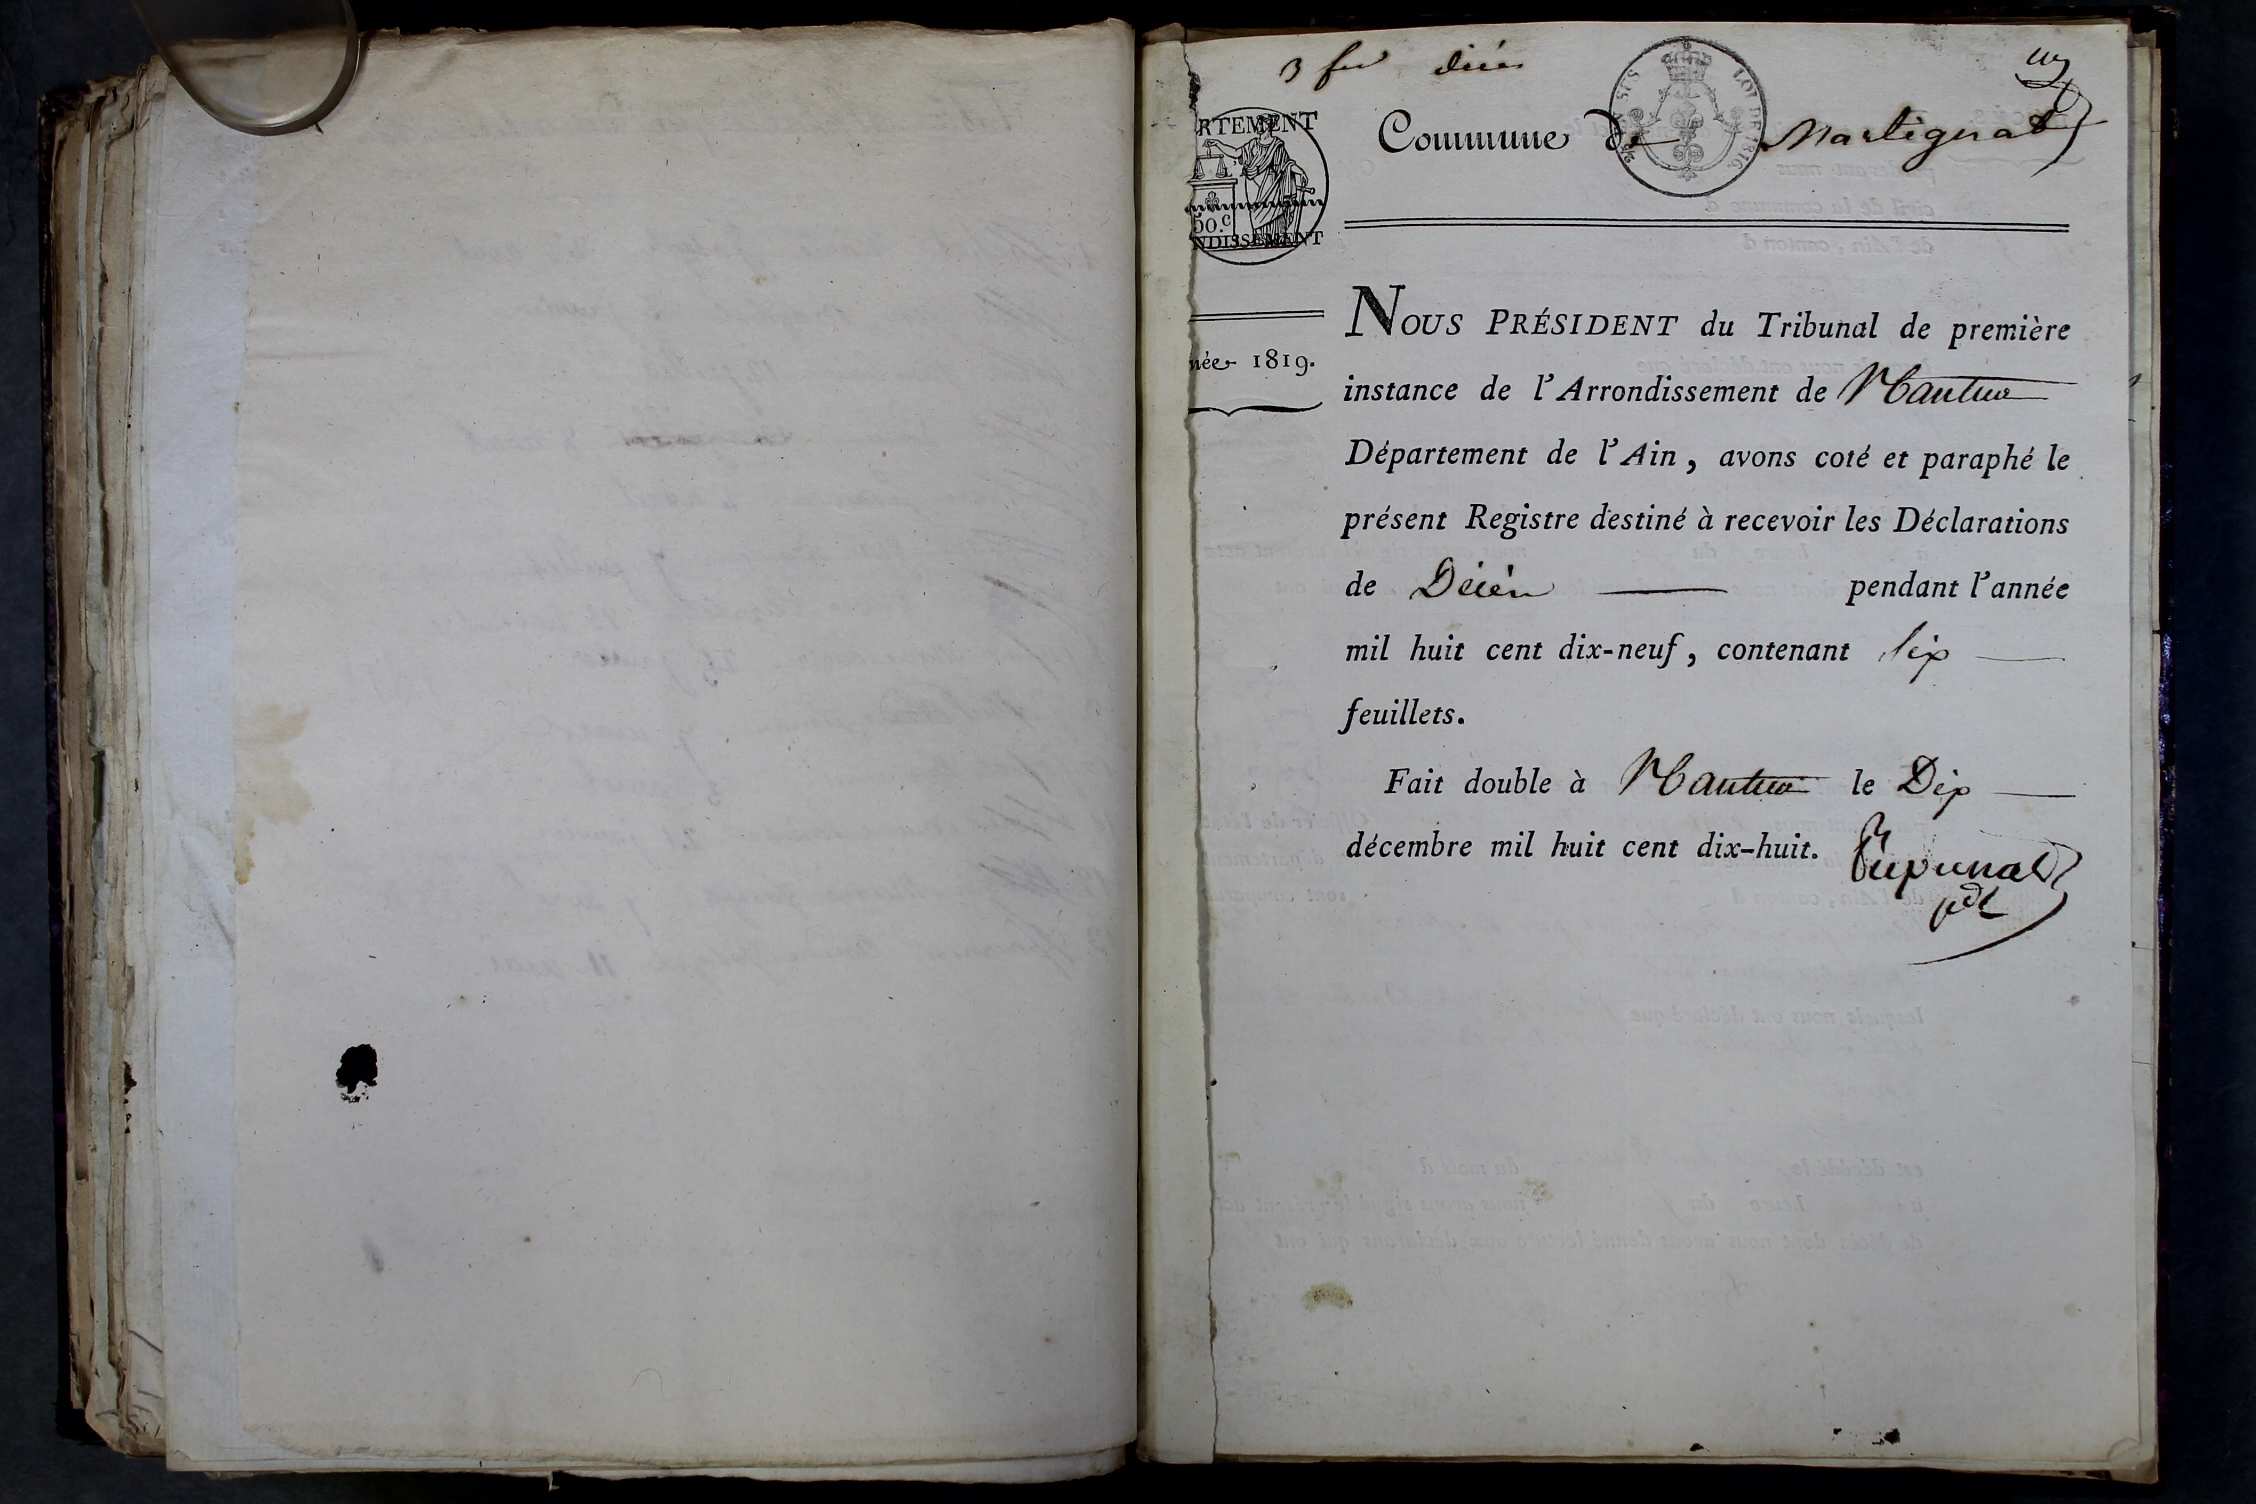 3 fet décès
RTEMENT
50.c
NDISSEMENT
LOI DE 1816.
Commune de Martignat
née 1819.
NOUS PRÉSIDENT du Tribunal de première
instance de l'Arrondissement de Nantua
Département de l'Ain, avons coté et paraphé le
présent Registre destiné à recevoir les Déclarations
de Décès pendant l'année
mil huit cent dix-neuf, contenant six
feuillets.
Fait double à Nantua le Dix
décembre mil huit cent dix-huit.
pdt